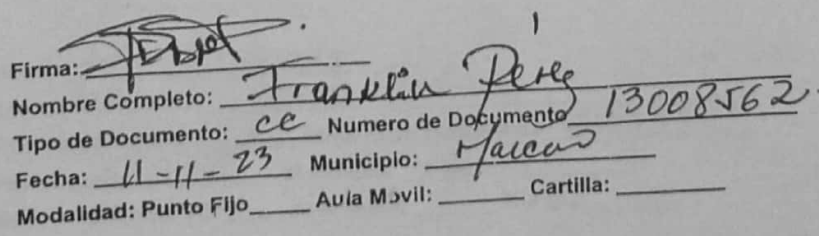 Firma:
Nombre Completo: Franklin Pérez
Tipo de Documento: cc Numero de Documento 13008562
Fecha: 11-11-23 Municipio: Maicao
Modalidad: Punto Fijo____ Aula Movil: ____ Cartilla: ____